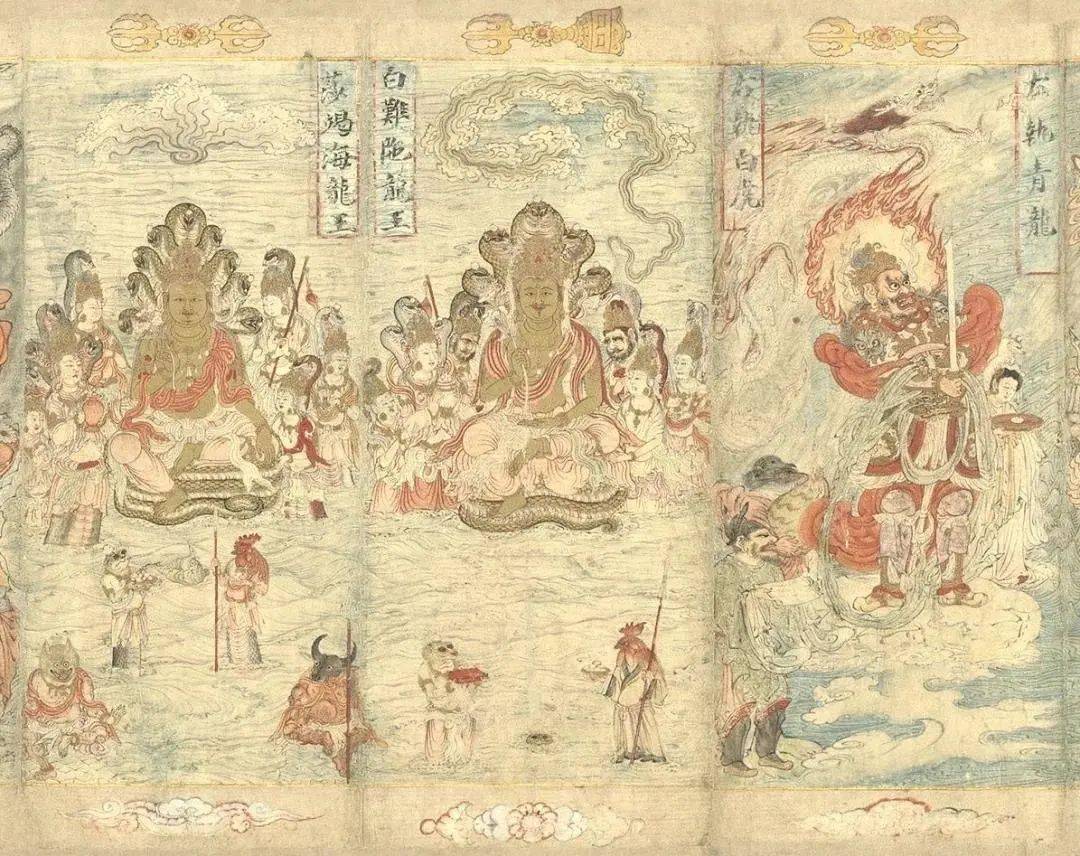 左執青龍
右執白虎
白難陁龍王
莎竭海龍王